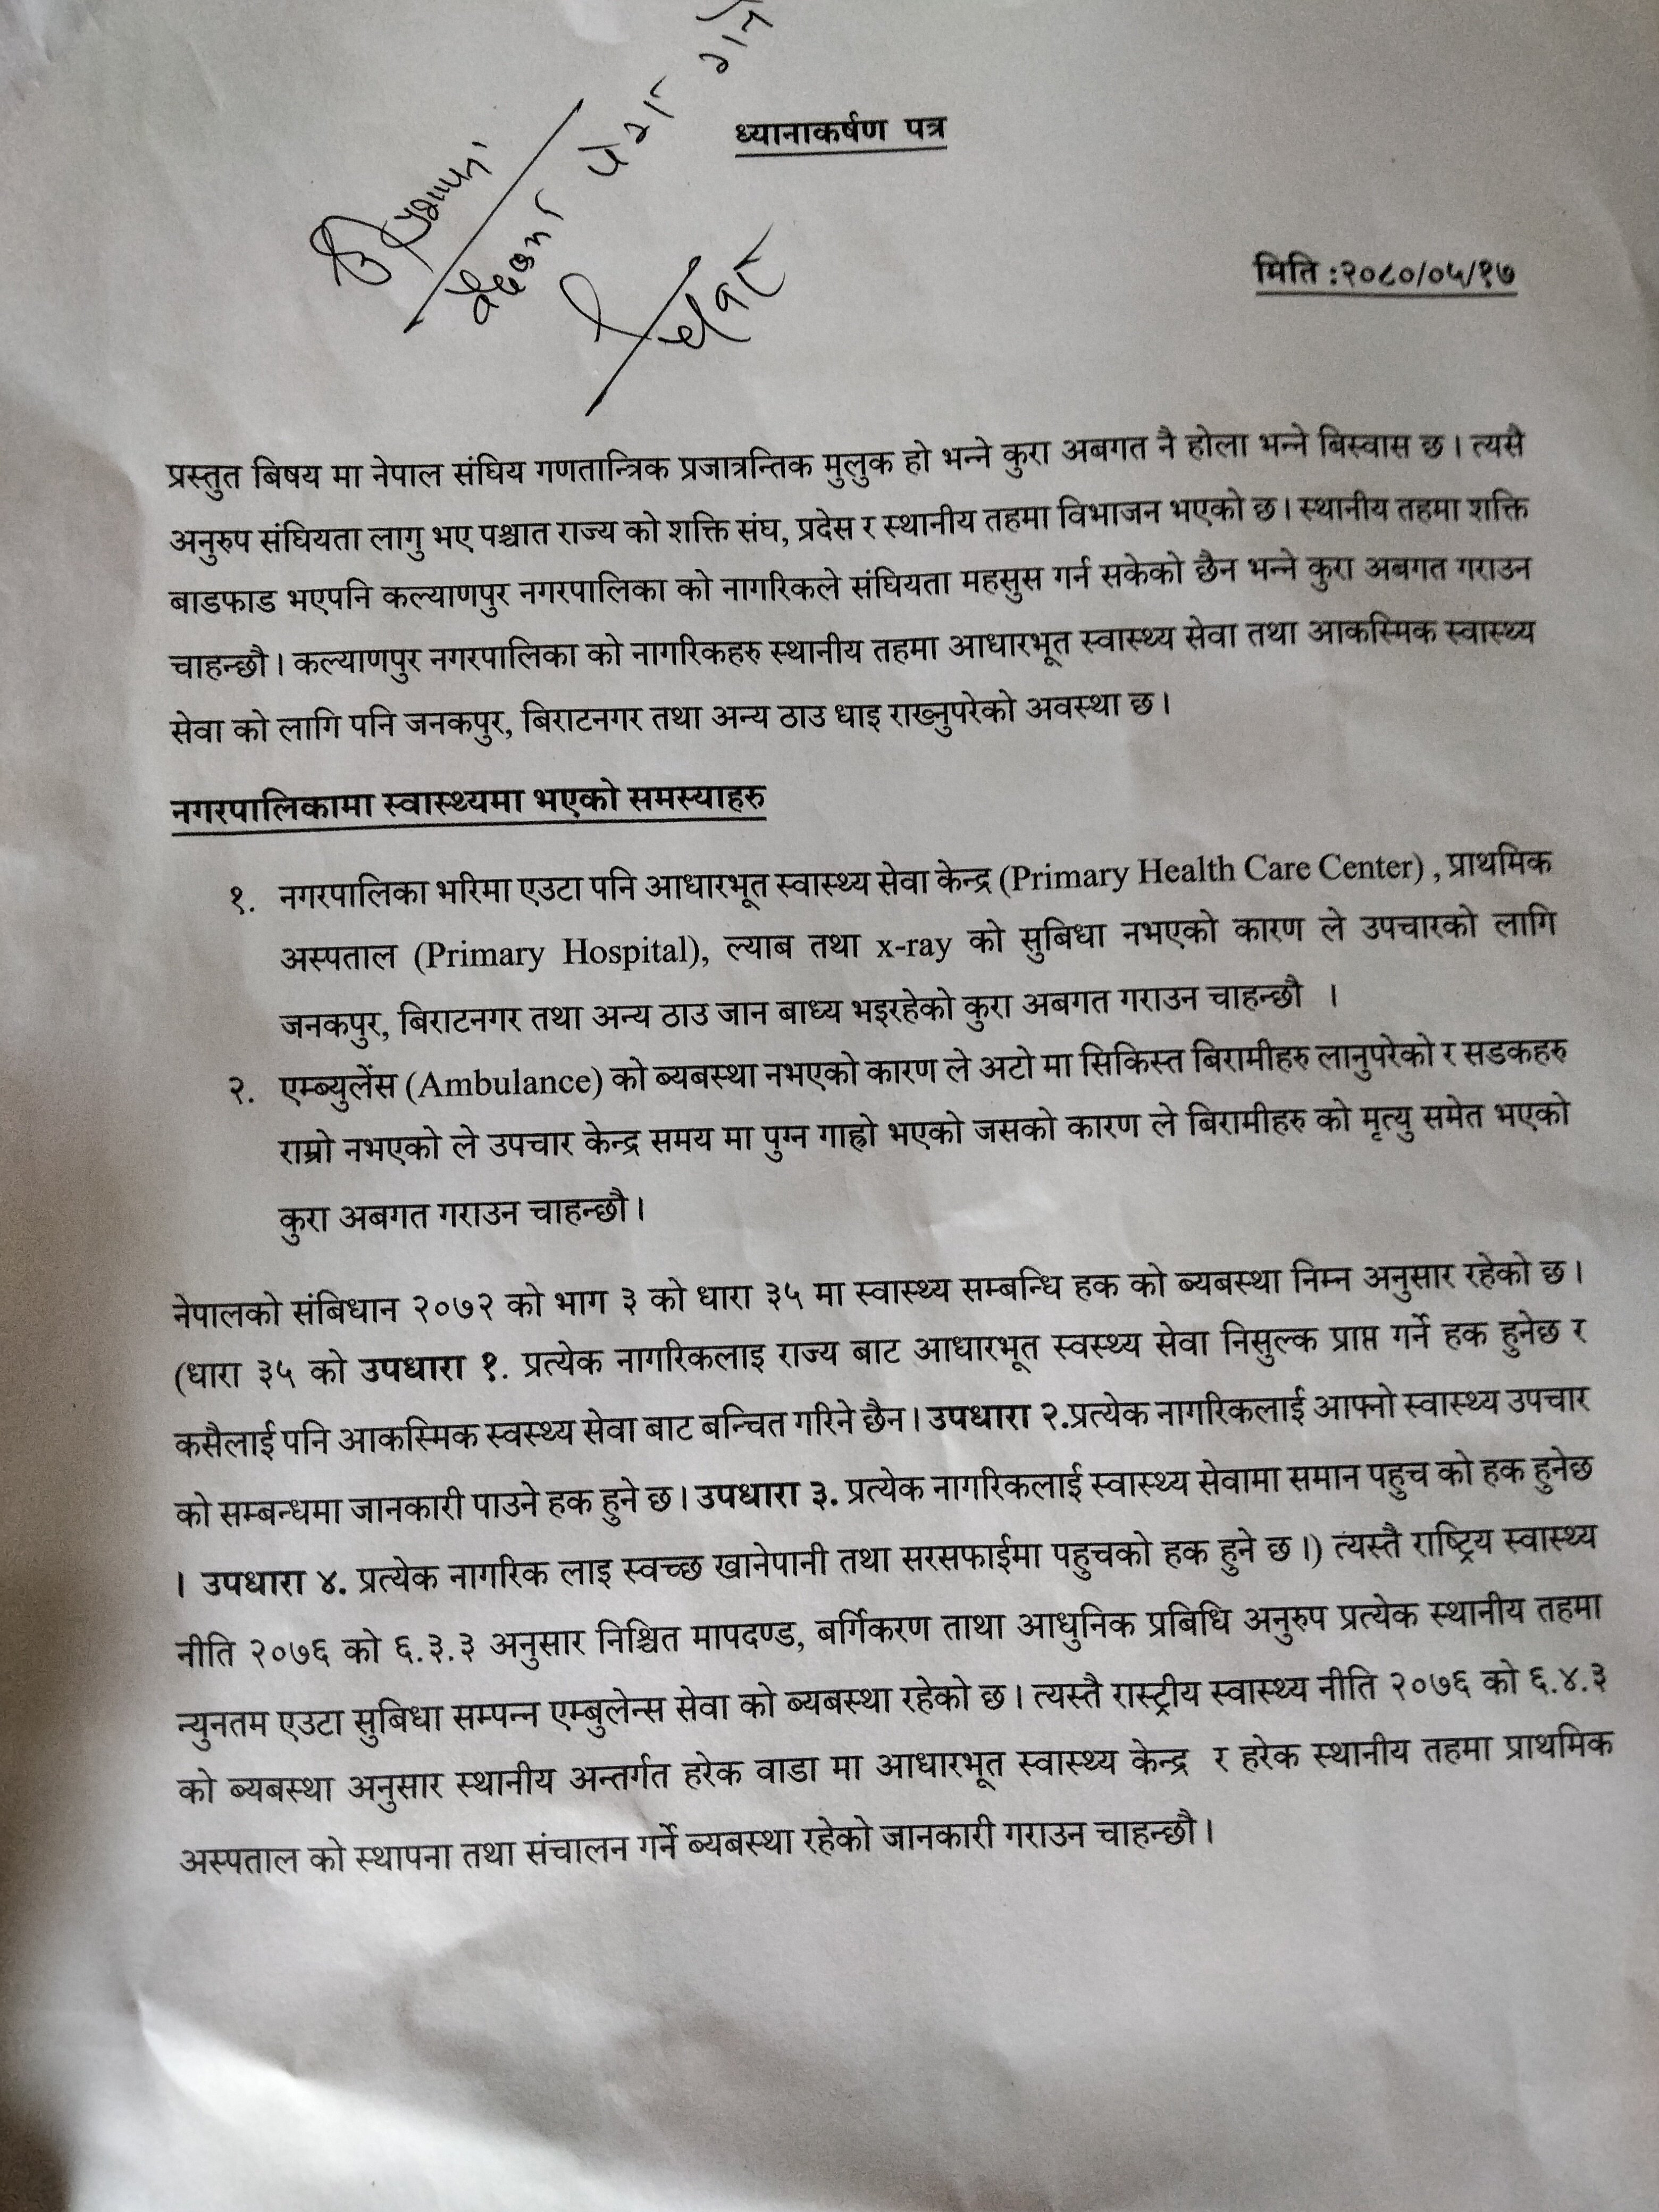 ध्यानाकर्षण पत्र
मिति :२०८०/०५/१७
प्रस्तुत बिषय मा नेपाल संघिय गणतान्त्रिक प्रजात्रन्तिक मुलुक हो भन्ने कुरा अबगत नै होला भन्ने बिस्वास छ। त्यसै
अनुरुप संघियता लागु भए पश्चात राज्य को शक्ति संघ, प्रदेस र स्थानीय तहमा विभाजन भएको छ। स्थानीय तहमा शक्ति
बाडफाड भएपनि कल्याणपुर नगरपालिका को नागरिकले संघियता महसुस गर्न सकेको छैन भन्ने कुरा अबगत गराउन
चाहन्छौ। कल्याणपुर नगरपालिका को नागरिकहरु स्थानीय तहमा आधारभूत स्वास्थ्य सेवा तथा आकस्मिक स्वास्थ्य
सेवा को लागि पनि जनकपुर, बिराटनगर तथा अन्य ठाउ धाइ राख्नुपरेको अवस्था छ।
नगरपालिकामा स्वास्थ्यमा भएको समस्याहरु
१. नगरपालिका भरिमा एउटा पनि आधारभूत स्वास्थ्य सेवा केन्द्र (Primary Health Care Center) , प्राथमिक
अस्पताल (Primary Hospital), ल्याब तथा x-ray को सुबिधा नभएको कारण ले उपचारको लागि
जनकपुर, बिराटनगर तथा अन्य ठाउ जान बाध्य भइरहेको कुरा अबगत गराउन चाहन्छौ ।
२. एम्ब्युलेंस (Ambulance) को ब्यबस्था नभएको कारण ले अटो मा सिकिस्त बिरामीहरु लानुपरेको र सडकहरु
राम्रो नभएको ले उपचार केन्द्र समय मा पुग्न गाह्रो भएको जसको कारण ले बिरामीहरु को मृत्यु समेत भएको
कुरा अबगत गराउन चाहन्छौ।
नेपालको संबिधान २०७२ को भाग ३ को धारा ३५ मा स्वास्थ्य सम्बन्धि हक को ब्यबस्था निम्न अनुसार रहेको छ।
(धारा ३५ को उपधारा १. प्रत्येक नागरिकलाइ राज्य बाट आधारभूत स्वस्थ्य सेवा निसुल्क प्राप्त गर्ने हक हुनेछ र
कसैलाई पनि आकस्मिक स्वस्थ्य सेवा बाट बन्चित गरिने छैन। उपधारा २.प्रत्येक नागरिकलाई आफ्नो स्वास्थ्य उपचार
को सम्बन्धमा जानकारी पाउने हक हुने छ। उपधारा ३. प्रत्येक नागरिकलाई स्वास्थ्य सेवामा समान पहुच को हक हुनेछ
। उपधारा ४. प्रत्येक नागरिक लाइ स्वच्छ खानेपानी तथा सरसफाईमा पहुचको हक हुने छ।) त्यस्तै राष्ट्रिय स्वास्थ्य
नीति २०७६ को ६.३.३ अनुसार निश्चित मापदण्ड, बर्गिकरण ताथा आधुनिक प्रबिधि अनुरुप प्रत्येक स्थानीय तहमा
न्युनतम एउटा सुबिधा सम्पन्न एम्बुलेन्स सेवा को ब्यबस्था रहेको छ। त्यस्तै रास्ट्रीय स्वास्थ्य नीति २०७६ को ६.४.३
को ब्यबस्था अनुसार स्थानीय अन्तर्गत हरेक वाडा मा आधारभूत स्वास्थ्य केन्द्र र हरेक स्थानीय तहमा प्राथमिक
अस्पताल को स्थापना तथा संचालन गर्ने ब्यबस्था रहेको जानकारी गराउन चाहन्छौ।